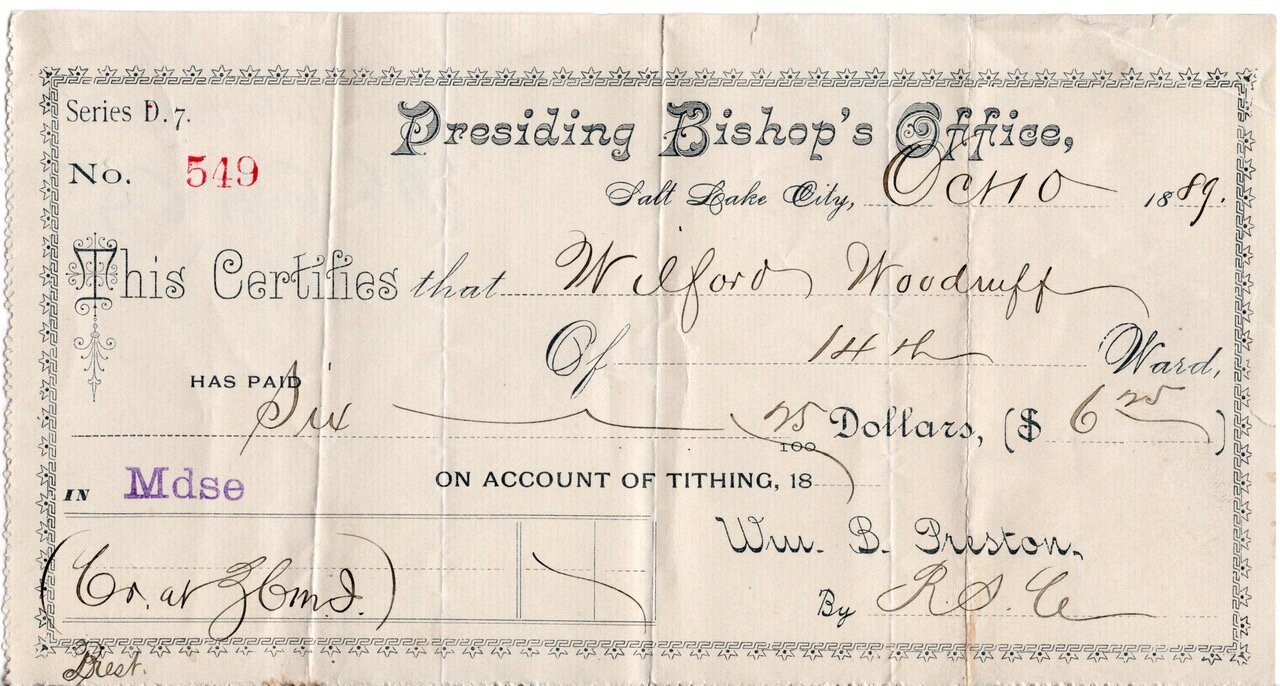 Series D. 7.
Presiding Bishop's Office,
No. 549
Salt Lake City, Oct 10 1889.
This Certifies that Wilford Woodruff
Of 14th Ward,
HAS PAID
Six 25/100 Dollars, ($ 6 25)
IN Mdse ON ACCOUNT OF TITHING, 18
Wm. B. Preston,
(Cr. at Z.C.M.I.)
By R. S.
Prest.